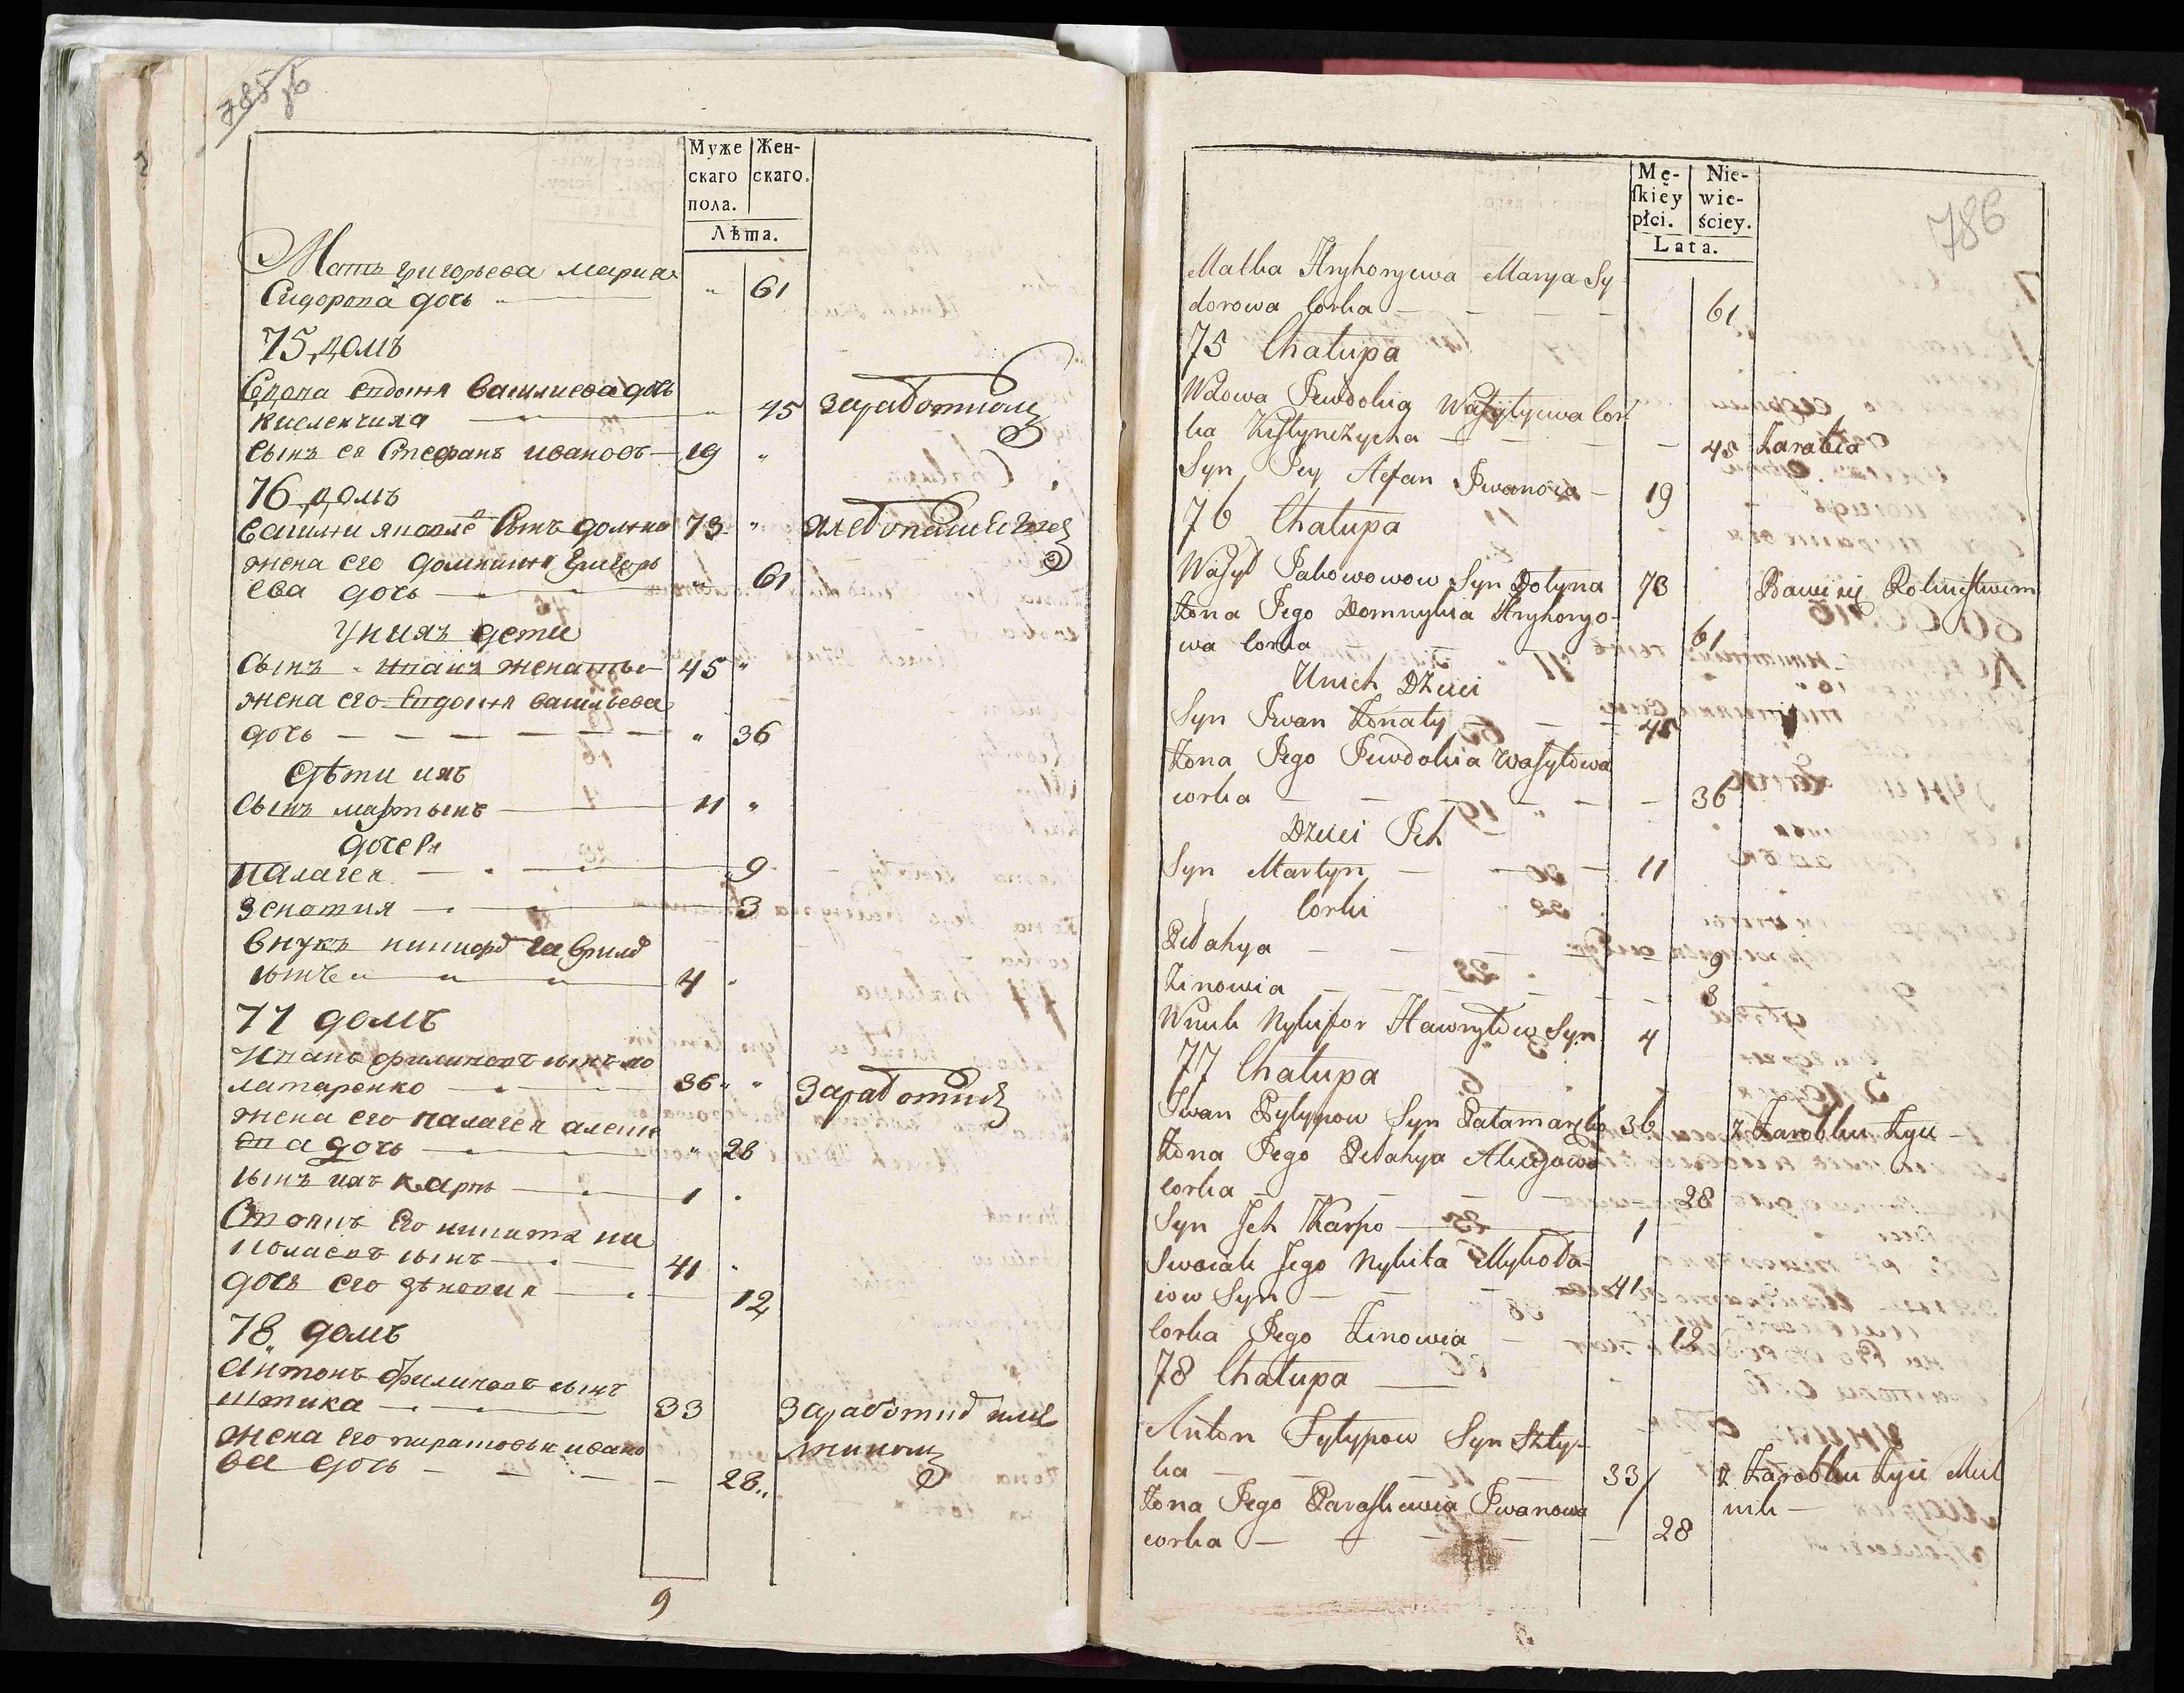 785 об
Муже
скаго
пола.
Жен-
скаго.
Лѣта.
Мать григорьева мариа
Сидорова дочь " 61
75 домъ
Вдова евдокия василиева дочь
45 заработком
сынъ ея Стефанъ ивановъ 19 "
76 домъ
василий сынъ 73 "
жена его григорь
ева дочь " 61
У нихъ дети
сынъ иванъ женатый 45 "
жена его Евдокия васильева
дочь " 36
дѣти ихъ
сынъ мартынъ 11 "
дочери
палагея 9
зеновия 3
внукъ никифоръ гаврилов
сынъ 4
77 домъ
Иванъ филиповъ сынъ по
ламаренко 36 " " заработком
жена его палагея
ва дочь " 28
сынъ ихъ карпъ 1
его никита ни
колаевъ сынъ 41
дочь его зѣновия 12
78 домъ
антонъ филиповъ сынъ
штика 33 заработком
жена его парасковья ивано
ва дочь 28
9
Mę-
ſkiéy
płci.
Nie-
wie-
ściey.
Lata.
786
Matka Hryhoryewa Marya Sy
dorowa Corka 61
75 Chałupa
Wdowa Jewdokia Wasylyewa Cor
ka 45 Zarabia
Syn Jey Stefan Iwanow 19
76 Chałupa
Wasyl Jakowowow Syn Dolyna 73 Bawi się Rolnictwem
Żona Jego Domnykia Hryhoryo-
wa Corka 61
U nich Dzieci
Syn Iwan Żonaty 45
Żona Jego Jewdokia Wasylowa
corka 36
Dzieci Ich
Syn Martyn 11
Corki
Pelahya 9
Zinowia 3
Wnuk Nykifor Hawryłow Syn 4
77 Chałupa
Iwan Pylypow Syn Pałamarzko 36 z Zarobku żyie
Żona Jego Pelahya
Corka 28
Syn Ich Karpo 1
Swoiak Jego Nykita Mykoła-
iow Syn 41
Corka Jego Zinowia 12
78 Chałupa
Anton Pylypow Syn Szty-
ka 33 z Zarobku żyie Miel
nik
Żona Jego Paraskewia Iwanowa
corka 28